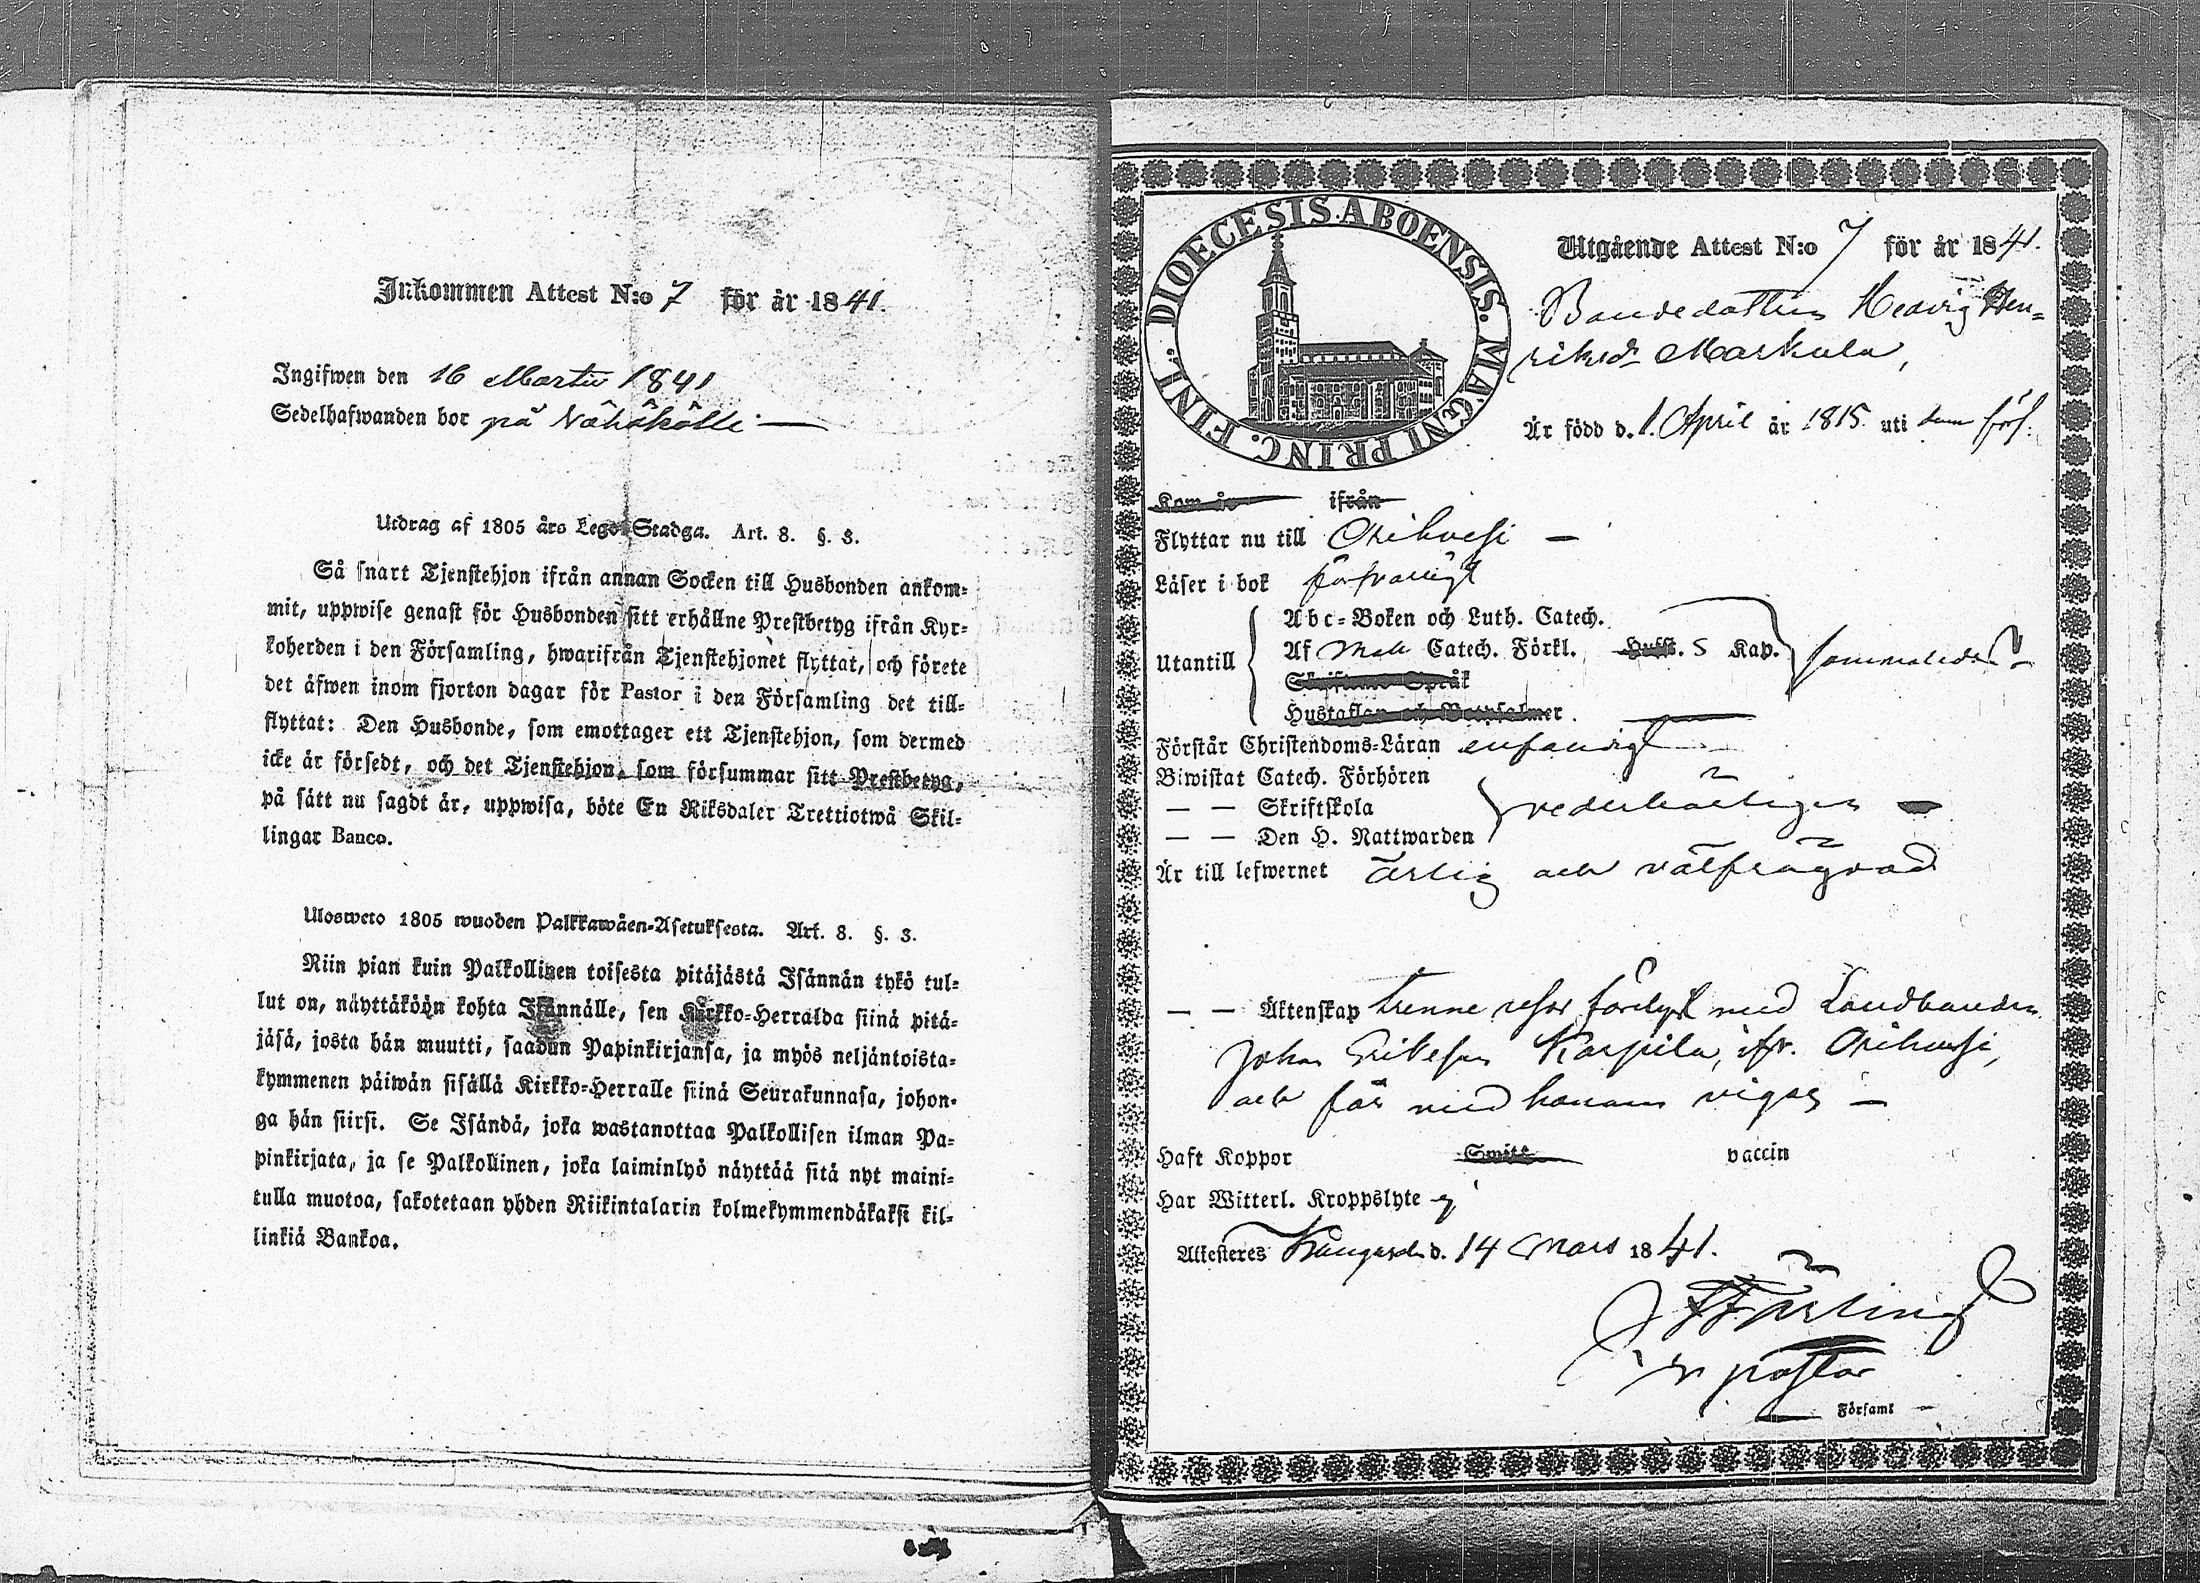 Inkommen Attest N:o 7 för år 1841.
Ingifwen den 16 Martii 1841
Sedelhafwanden bor på
Utdrag af 1805 års Lego-Stadga. Art. 8. §. 3.
Så snart Tjenstehjon ifrån annan Socken till Husbonden ankom-
mit, uppwise genast för Husbonden sitt erhållne Prestbetyg ifrån Kyr-
koherden i den Församling, hwarifrån Tjenstehjonet flyttat, och förete
det äfwen inom fjorton dagar för Pastor i den Församling det till-
flyttat: Den Husbonde, som emottager ett Tjenstehjon, som dermed
icke är försedt, och det Tjenstehjon, som försummar sitt Prestbetyg,
på sätt nu sagdt är, uppwisa, böte En Riksdaler Trettiotwå Skil-
lingar Banco.
Ulosweto 1805 wuoden Palkkawäen-Asetuksesta. Art. 8. §. 3.
Niin pian kuin Palkollinen toisesta pitäjästä Isännän tykö tul-
lut on, näyttäköön kohta Isännälle, sen Kirkko-Herralda siinä pitä-
jäsä, josta hän muutti, saadun Papinkirjansa, ja myös neljäntoista-
kymmenen päiwän sisällä Kirkko-Herralle siinä Seurakunnasa, johon-
ga hän siirsi. Se Isändä, joka wastanottaa Palkollisen ilman Pa-
pinkirjata, ja se Palkollinen, joka laiminlyö näyttää sitä nyt maini-
tulla muotoa, sakotetaan yhden Riikintalarin kolmekymmendäkaksi kil-
linkiä Bankoa.
DIOECESIS ABOENSIS. MAGNI PRINC. FINL.
Utgående Attest N:o 7 för år 1841.
Bondedottren Hedvig Hen-
riksdr Markula,
Är född d. 1. April år 1815. uti denna förs.
Kom år ifrån
Flyttar nu till Orihvesi —
Läser i bok försvarligt
Utantill
Abc-Boken och Luth. Catech.
Af Catech. Förkl. Hufst. 5 Kap.
Skriftenes Språk
Hustaflan och Botpsalmer.
Förstår Christendoms-Läran enfaldigt
Biwistat Catech. Förhören
— — Skriftskola
— — Den H. Nattwarden
vederbörligen
Är till lefwernet ärlig och välfrägdad
— — Äktenskap trenne resor förelyst med Landbonden
Johan Eriksson Karpila, ifr. Orihvesi,
och får med honom vigas —
Haft Koppor Smitt. vaccin
Har Witterl. Kroppslyte ej
Attesteres Kangasala d. 14 Mars 1841.
pastor
Församl